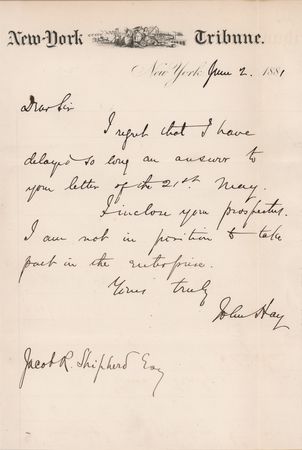 New-York Tribune.
New York, June 2. 1881
Dear Sir
I regret that I have
delayed so long an answer to
your letter of the 21st May.
I inclose your prospectus.
I am not in position to take
part in the enterprise.
Yours truly
John Hay
Jacob R. Shipherd Esq